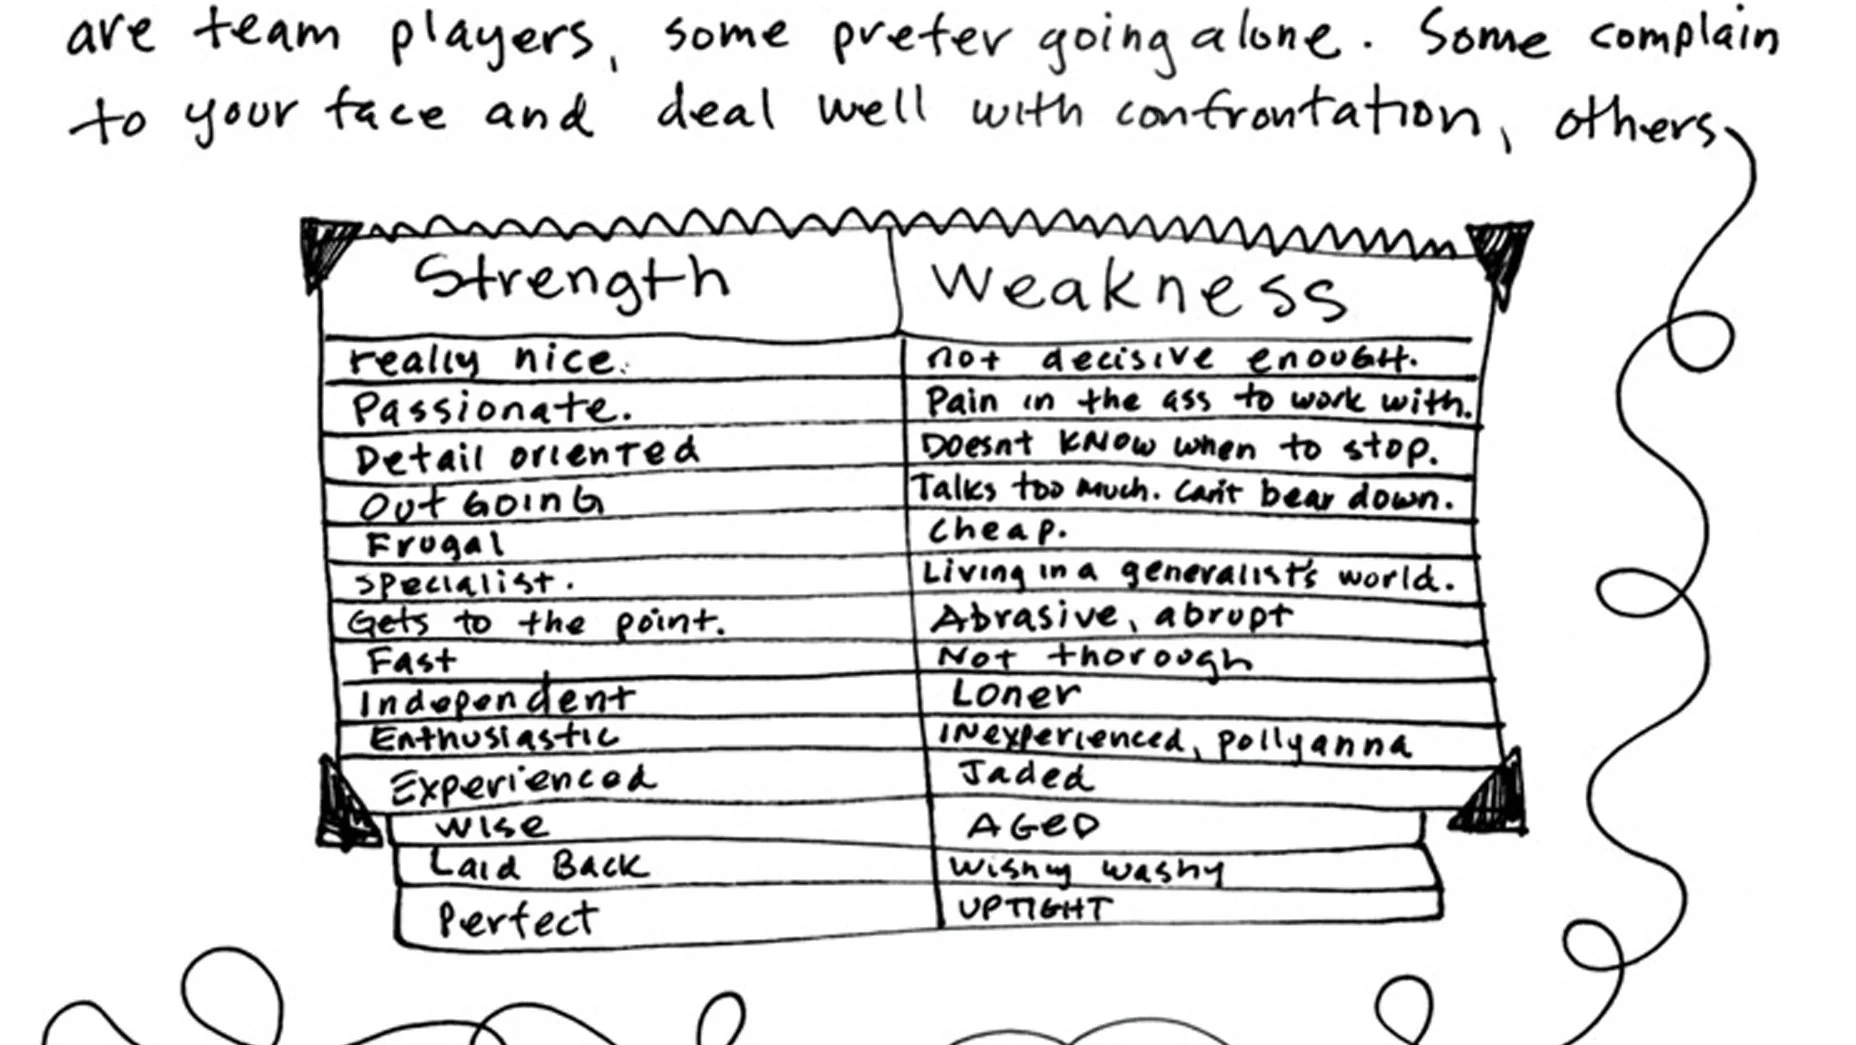 are team players, some prefer going alone. Some complain
to your face and deal well with confrontation, others
Strength Weakness
really nice. not decisive enough.
Passionate. Pain in the ass to work with.
Detail oriented Doesnt KNOW when to stop.
Out GOING Talks too much. Can't bear down.
Frugal Cheap.
specialist. Living in a generalist's world.
Gets to the point. Abrasive, abrupt
Fast Not thorough
Independent Loner
Enthusiastic INexperienced, pollyanna
Experienced Jaded
Wise AGED
Laid Back Wishy washy
Perfect UPTIGHT